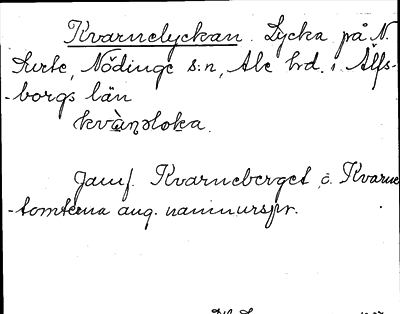 Kvarnelyckan. Lycka på N.
Surte, Nödinge s:n, Ale hd. i Älfs-
-borgs län
kvàn̥əloka.
Jamf. Kvarneberget, o. Kvarne
-tomterna ang. namnurspr.